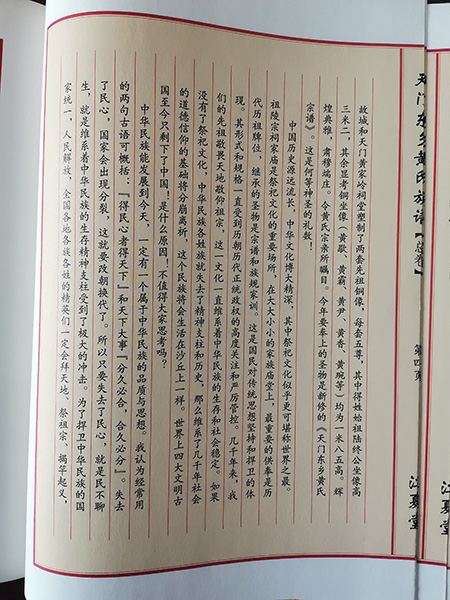 天门东乡黄氏族谱【总卷】 第四页 江夏堂
故城和天门黄家岭祠堂塑制了两套先祖铜像，每套五尊，其中得姓始祖陆终公坐像高
三米二，其余显考铜坐像（黄歇、黄霸、黄尹、黄香、黄琬等）均为一米八五高。辉
煌典雅，肃穆端庄。令黄氏宗亲所瞩目。今年要奉上的圣物是新修的《天门东乡黄氏
宗谱》。这是何等神圣的礼数！
中国历史源远流长，中华文化博大精深，其中祭祀文化似乎更可堪称世界之最。
祖陵宗祠家庙是祭祀文化的重要场所，在大大小小的家族庙堂上，最重要的供奉是历
代历祖牌位，继承的圣物是宗谱和族规家训。这是国民对传统思想坚持和捍卫的体
现。其形式和规格一直受到历朝历代正统政权的高度关注和严厉管控。几千年来，我
们的先祖敬畏天地敬仰祖宗，这一文化一直维系着中华民族的生存和社会稳定。如果
没有了祭祀文化，中华民族各姓族就失去了精神支柱和历史，那么维系了几千年社会
的道德信仰的基础将分崩离析，这个民族将会生活在沙丘上一样。世界上四大文明古
国至今只剩下了中国！是什么原因，不值得大家思考吗？
中华民族能发展到今天，一定有一个属于中华民族的品质与思想。我认为经常用
的两句古语可概括：『得民心者得天下』和天下大事『分久必合，合久必分』。失去
了民心，国家会出现分裂，这就要改朝换代了。所以只要失去了民心，就是民不聊
生，就是维系着中华民族的生存精神支柱受到了极大的冲击。为了捍卫中华民族的国
家统一，人民解放，全国各地各族各姓的精英们一定会拜天地、祭祖宗、揭竿起义，
江夏堂